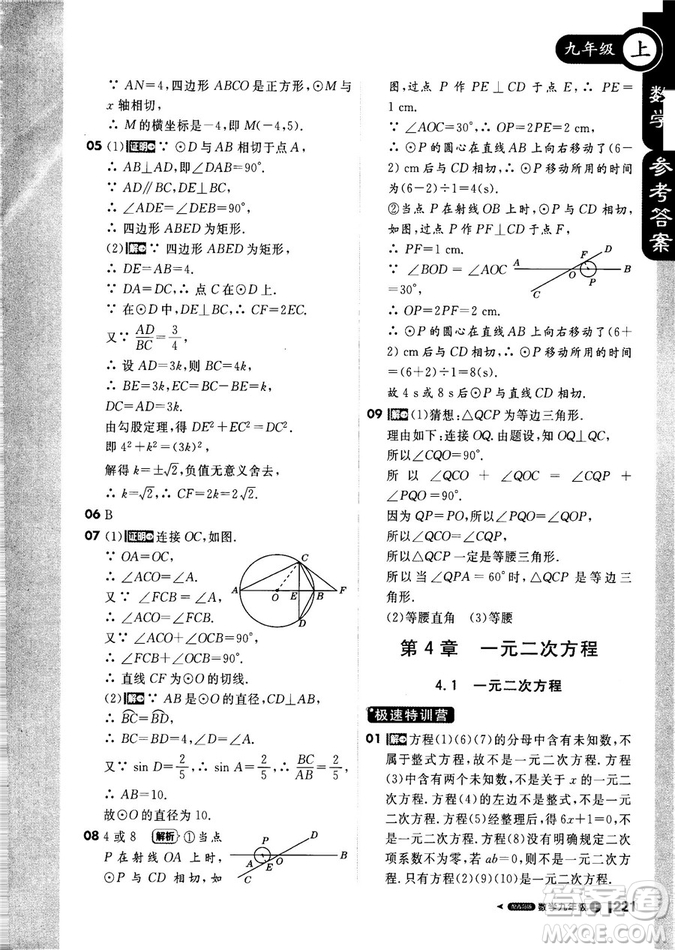 九年级 上
数学
参考答案
∵ AN=4,四边形 ABCO 是正方形,⊙M 与
x 轴相切,
∴ M 的横坐标是-4,即 M(-4,5).
05 (1)证明 ∵ ⊙D 与 AB 相切于点 A,
∴ AB⊥AD,即∠DAB=90°.
又∵ AD∥BC,DE⊥BC,
∴ ∠ADE=∠DAB=90°.
∴ 四边形 ABED 为矩形.
(2)解 ∵ 四边形 ABED 为矩形,
∴ DE=AB=4.
∵ DA=DC,∴ 点 C 在⊙D 上.
∵ 在⊙D 中,DE⊥CF,∴ CF=2EC.
又∵ AD/BC=3/4,
∴ 设 AD=3k,则 BC=4k.
∴ BE=3k,EC=BC-BE=k,
DC=AD=3k.
由勾股定理,得 DE²+EC²=DC².
即 4²+k²=(3k)².
解得 k=±√2,负值无意义舍去.
∴ k=√2,∴ CF=2EC=2√2.
06 B
07 (1)证明 连接 OC,如图.
∵ OA=OC,
∴ ∠ACO=∠A.
又∵ ∠FCB=∠A,
∴ ∠ACO=∠FCB.
又∵ AB 是⊙O 的直径,
∴ ∠ACO+∠OCB=90°.
∴ ∠FCB+∠OCB=90°.
即∠FCO=90°.
∴ 直线 CF 为⊙O 的切线.
A O E B F C D
(2)解 ∵ AB 是⊙O 的直径,CD⊥AB,
∴ BC=BD.
∴ BC=BD=4,∠A=∠D.
又∵ sin D=2/5,∴ sin A=BC/AB=2/5.
∴ AB=10.
故⊙O 的直径为 10.
08 4 或 8 解析 ①当点
P 在射线 OA 上时,
P D A O E B C
图,过点 P 作 PE⊥CD 于点 E,∴ PE=
1 cm.
∵ ∠AOC=30°,∴ OP=2PE=2 cm.
∴ ⊙P 的圆心在直线 AB 上向右移动了(6-
2)cm.∴ ⊙P 移动所用的时间
为(6-2)÷1=4(s).
②当点 P 在射线 OB 上时,
过点 P 作 PF⊥CD 于点 F,
∴ PF=1 cm.
∵ ∠BOD=∠AOC
=30°,
∴ OP=2PF=2 cm.
A C O F D P B
∴ ⊙P 的圆心在直线 AB 上向右移动了(6+
2)cm.∴ ⊙P 移动所用的时间
为(6+2)÷1=8(s).
故 4 s 或 8 s 后⊙P 与直线 CD 相切.
09 解 (1)猜想:△QCP 为等边三角形.
理由如下:连接 OQ.由题设,知 OQ⊥CQ,
所以∠CQO=90°.
所以∠QCO+∠QOC=∠CQP+
∠PQO=90°.
因为 QP=PO,所以∠PQO=∠QOP.
所以∠QCO=∠CQP.
所以△QCP 为等腰三角形.
所以当∠QPA=60°时,△QCP 为等边三
角形.
(2)等腰直角 (3)等腰
第 4 章 一元二次方程
4.1 一元二次方程
极速特训营
01 解 方程(1)(6)(7)的分母中含有未知数,不
属于整式方程,故不是一元二次方程.方程
(3)中含有两个未知数,故不是关于 x 的一
元二次方程.方程(4)左边不是整式,故不是
一元二次方程.方程(5)整理后,得 6x+1=0,不
是一元二次方程.方程(8)没有明确规定二次
项系数不为零,若 ab=0,则不是一元二次
方程.只有方程(2)(9)(10)是一元二次方程.
数学九年级 上 221